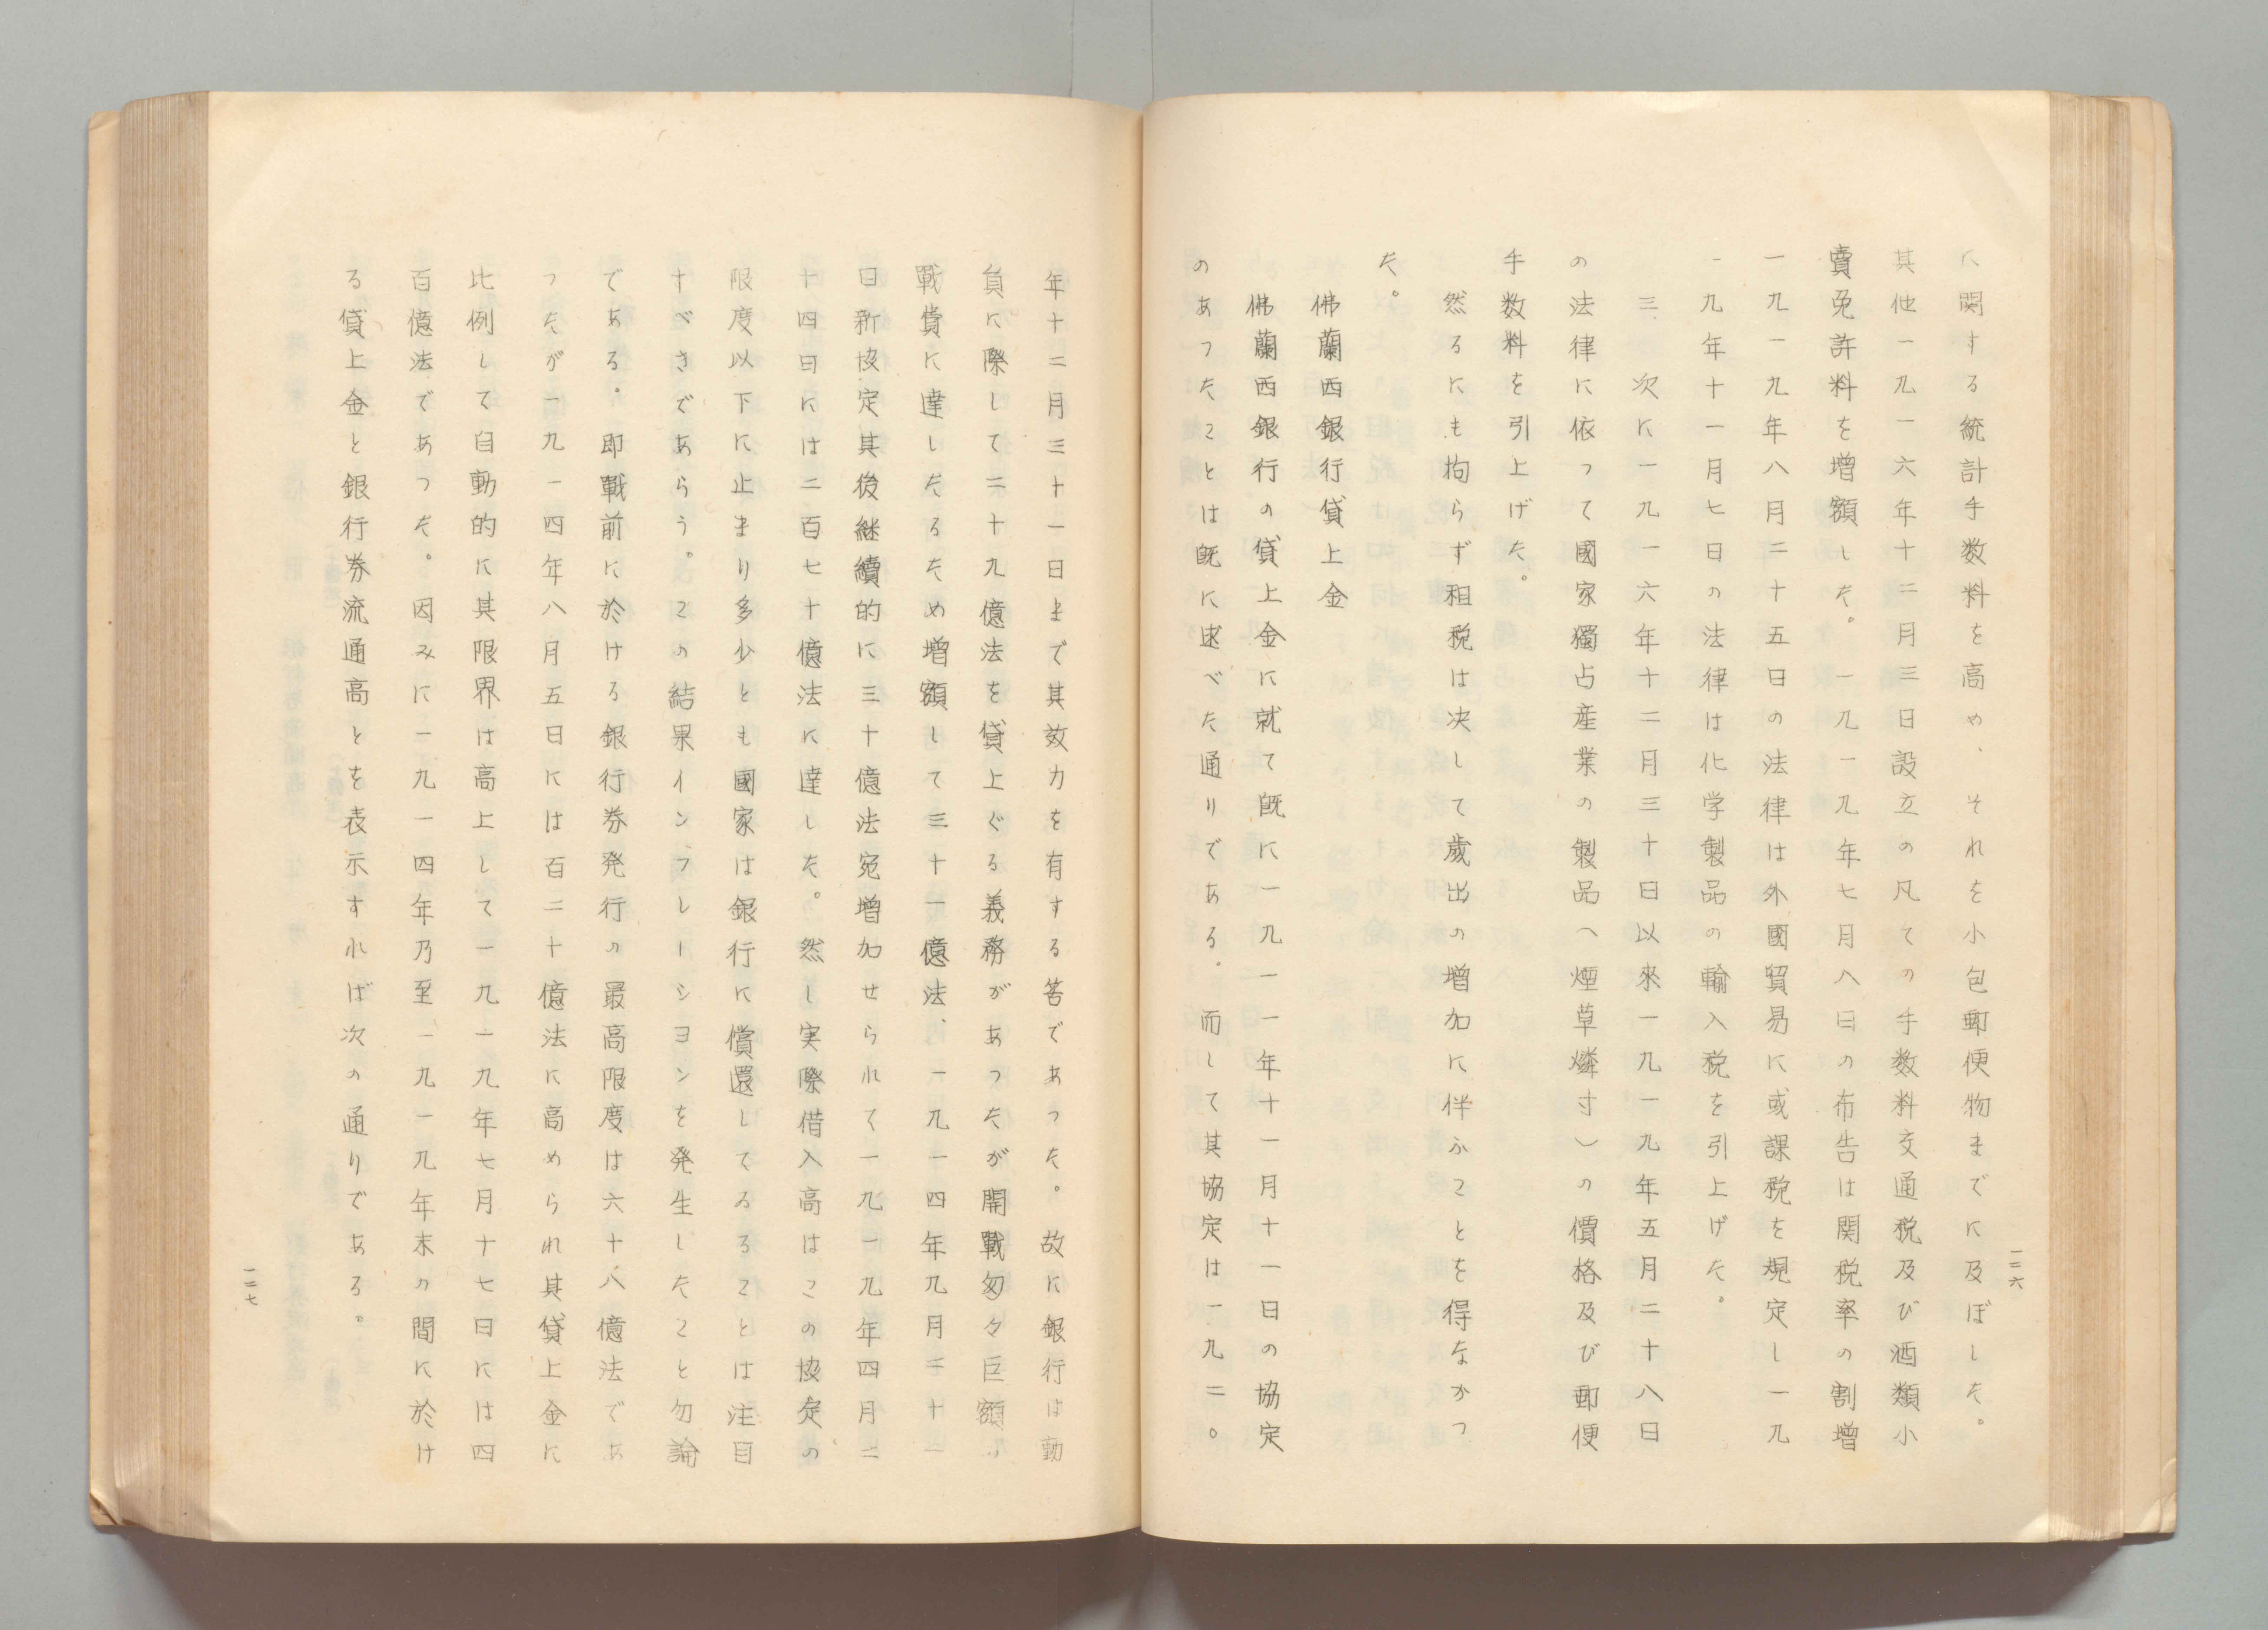 に関する統計手数料を高め、それを小包郵便物までに及ぼした。
其他一九一六年十二月三日設立の凡ての手数料交通税及び酒類小
賣免許料を増額した。一九一九年七月八日の布告は関税率の割増
一九一九年八月二十五日の法律は外國貿易に或課税を規定し一九
一九年十一月七日の法律は化学製品の輸入税を引上げた。
三、次に一九一六年十二月三十日以來一九一九年五月二十八日
の法律に依つて國家獨占産業の製品(煙草燐寸)の價格及び郵便
手数料を引上げた。
然るにも拘らず租税は决して歳出の増加に伴ふことを得なかつ
た。
佛蘭西銀行貸上金
佛蘭西銀行の貸上金に就て既に一九一一年十一月十一日の協定
のあつたことは既に述べた通りである。而して其協定は一九二〇
一二六
年十二月三十一日まで其效力を有する筈であつた。故に銀行は動
員に際して二十九億法を貸上ぐる義務があつたが開戰匆々巨額の
戰費に達したるため増額して三十一億法、一九一四年九月二十一
日新协定其後継續的に三十億法宛増加せられて一九一九年四月二
十四日には二百七十億法に達した。然し実際借入高はこの协定の
限度以下に止まり多少とも國家は銀行に償還してゐることは注目
すべきであらう。この結果インフレーシヨンを発生したこと勿論
である。即戰前に於ける銀行券発行の最高限度は六十八億法であ
つたが一九一四年八月五日には百二十億法に高められ其貸上金に
比例して自動的に其限界は高上して一九一九年七月十七日には四
百億法であつた。因みに一九一四年乃至一九一九年末の間に於け
る貸上金と銀行券流通高とを表示すれば次の通りである。
一二七